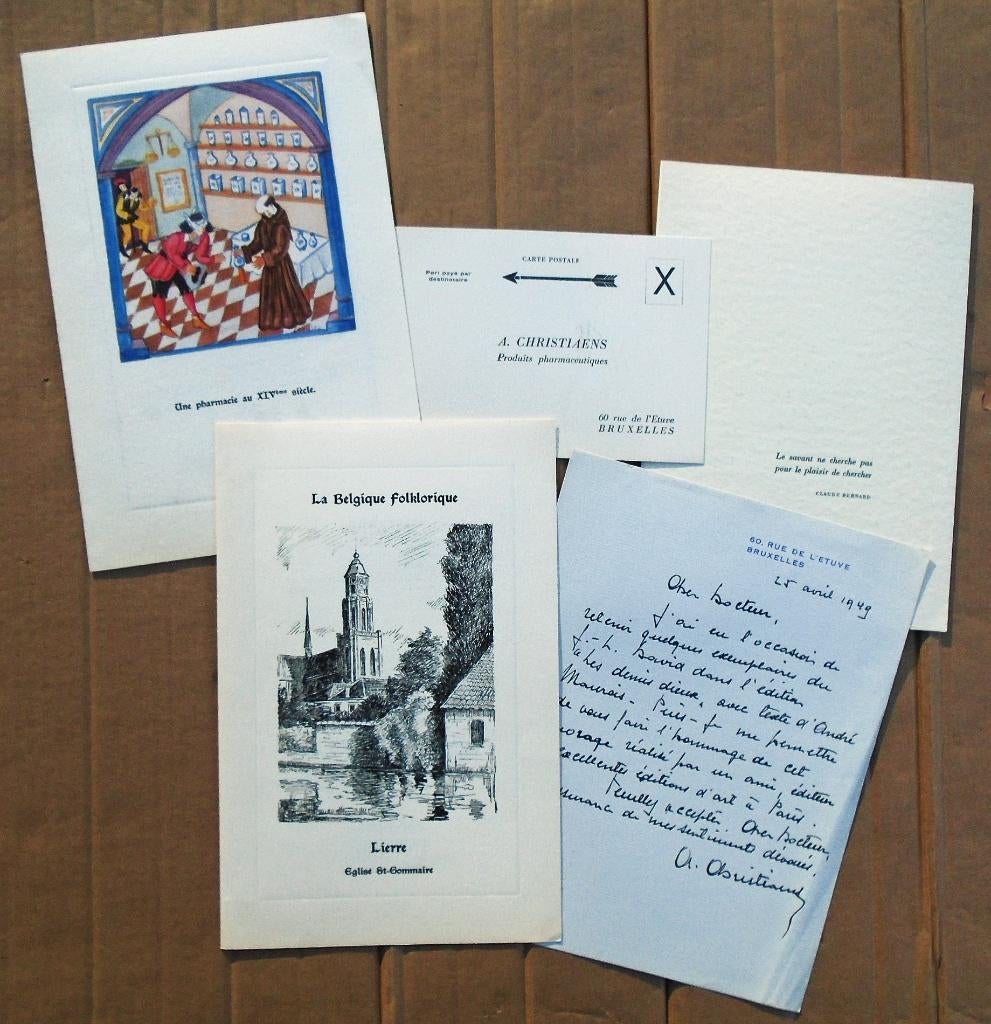 Une pharmacie au XIVème siècle.
Port payé par
destinataire
CARTE POSTALE
X
A. CHRISTIAENS
Produits pharmaceutiques
60 rue de l'Etuve
BRUXELLES
Le savant ne cherche pas
pour le plaisir de chercher
CLAUDE BERNARD
La Belgique Folklorique
Lierre
Eglise St-Gommaire
60, RUE DE L'ETUVE
BRUXELLES
25 avril 1949
Cher Docteur,
J'ai eu l'occasion de
retenir quelques exemplaires du
J.-L. David dans l'édition
les demis dieux, avec texte d'André
Maurois. Puis-je me permettre
de vous faire l'hommage de cet
ouvrage réalisé par un ami, éditeur
excellentes éditions d'art à Paris.
Veuillez accepter, Cher Docteur,
assurance de mes sentiments dévoués.
A. Christiaens